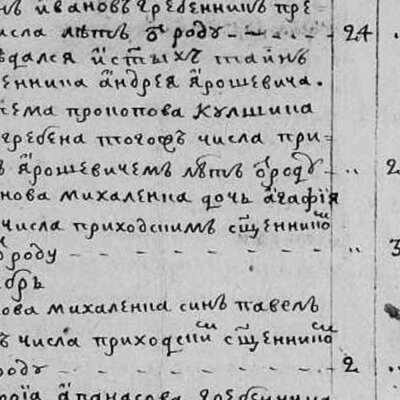 нъ ивановъ гребенникъ пре=
исла лѣтъ ѿ роду 24
ѣдался и стыхъ таинъ
енника андрея ярошевича.
ѣма прокопова кулшина
гребена тогожъ числа при=
ъ ярошевичемъ лѣтъ ѿ роду 2
нова михаленка дочь агафія
числа приходскимъ сщенико
роду 3
ябръ
ова михаленка синъ павелъ
ъ числа приходски сщеннико
роду 2
апанасова гребенника